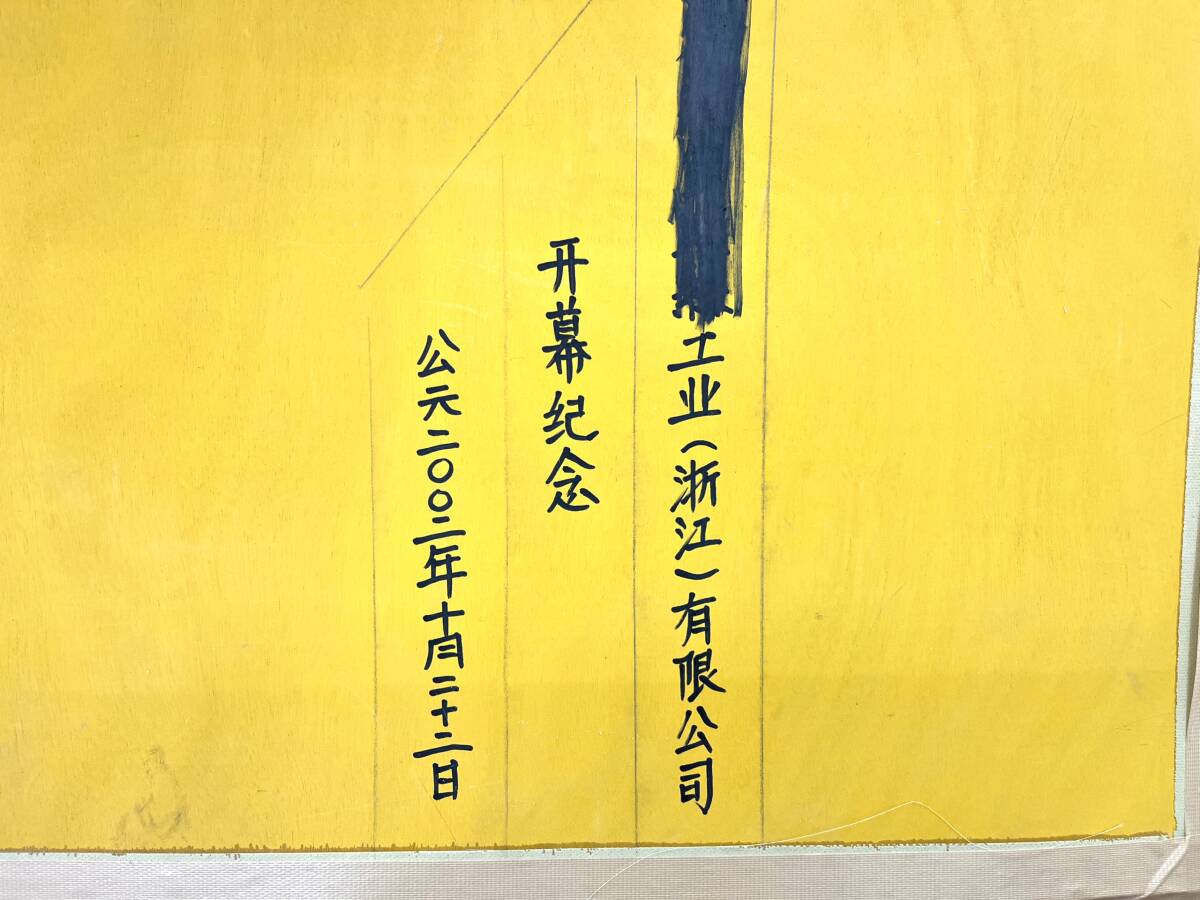 工业（浙江）有限公司
开幕纪念
公元二〇〇二年十月二十二日